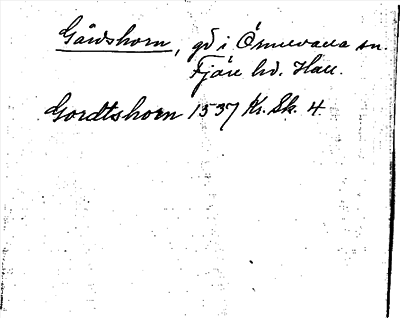 Gårdshorn, gd i Ömevalla sn.
Fjäre hd. Hall.
Gordtshorn 1537 Kr. Sk. 4